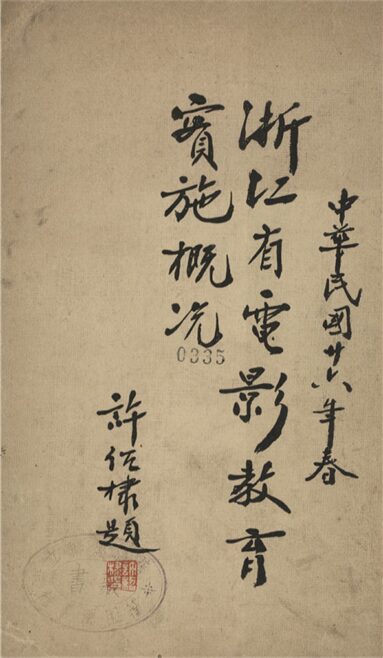 中華民國廿六年春
浙江省電影教育
實施概况
0335
許紹棣題
書